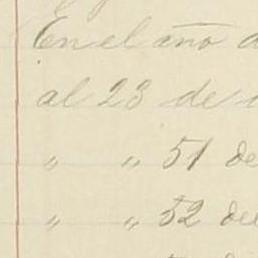 En el año
al 23 de
" " 51 de
" " 52 de